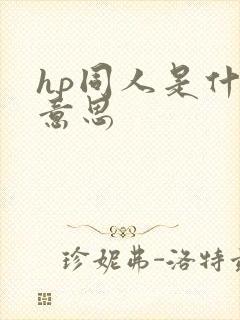 hp同人是什
意思
珍妮弗-洛特